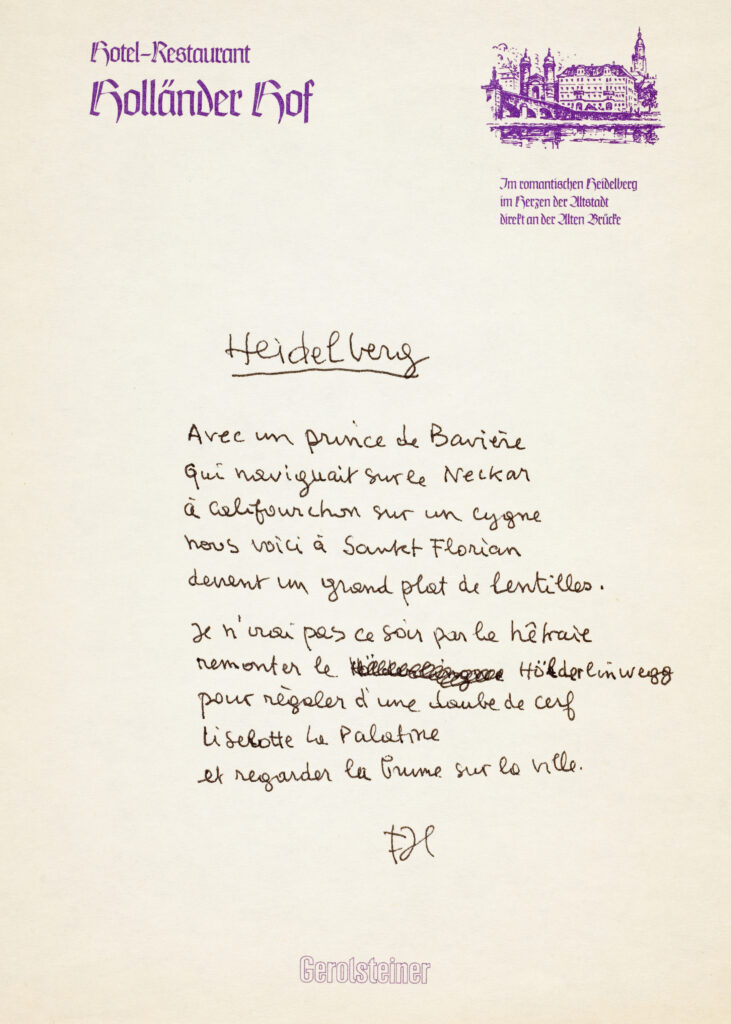 Hotel-Restaurant
Holländer Hof
Im romantischen Heidelberg
im Herzen der Altstadt
direkt an der Alten Brücke
Heidelberg
Avec un prince de Bavière
Qui naviguait sur le Neckar
à califourchon sur un cygne
nous voici à Sankt Florian
devant un grand plat de lentilles.
Je n'irai pas ce soir par la hêtraie
remonter le Hölderlinwegg
pour régaler d'une daube de cerf
Liselotte La Palatine
et regarder la brume sur la ville.
FJH
Gerolsteiner